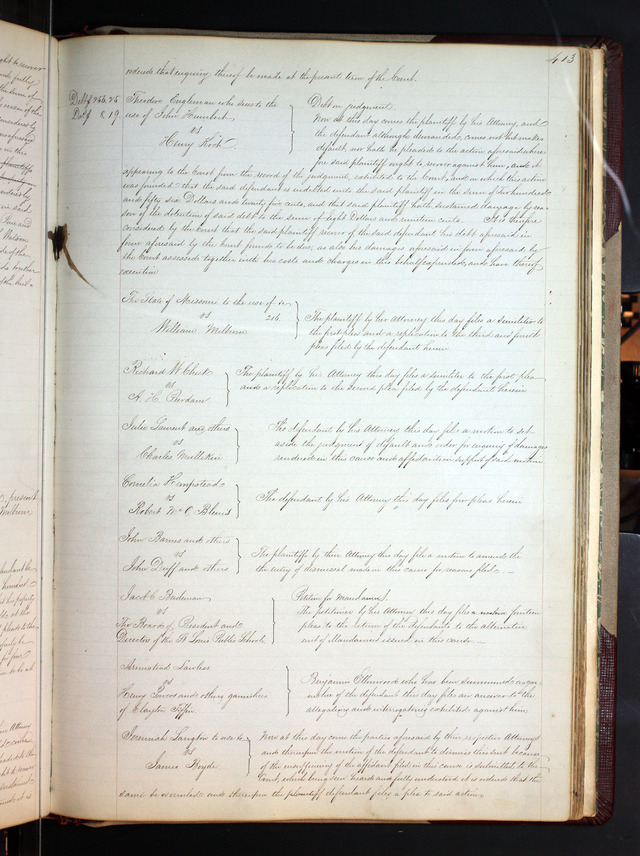 413
ordered that enquiry thereof be made at the present term of the Court.
Debt $256.25
Dam $ 8.19
Theodore Engleman who sues to the
use of John Humbert
vs
Henry Koch
Debt on judgment.
Now at this day comes the plaintiff by his Attorney, and
the defendant although demanded, comes not but makes
default, nor hath he pleaded to the action aforesaid where-
fore said plaintiff ought to recover against him, and it
appearing to the Court from the record of the judgment, exhibited to the Court, and on which this action
was founded that the said defendant is indebted unto the said plaintiff in the sum of Two hundred
and fifty six Dollars and twenty five cents, and that said plaintiff hath sustained damage by rea-
son of the detention of said debt to the sum of Eight Dollars and nineteen cents. It is therefore
considered by the Court that the said plaintiff recover of the said defendant his debt aforesaid in
form aforesaid by the Court found to be due, as also his damages aforesaid in form aforesaid by
the Court assessed together with his costs and charges in this behalf expended, and have thereof
execution
The State of Missouri to the use of &c
vs 216
William Milburn
The plaintiff by her Attorney this day files a similiter to
the first plea and a replication to the third and fourth
pleas filed by the defendant herein
Richard W
vs
A. H.
The plaintiff by his Attorney this day files a similiter to the first plea
and a replication to the second plea filed by the defendant herein
Julie Laurent and others
vs
Charles Mullikin
The defendant by his Attorney this day files a motion to set
aside the judgment of default and order for enquiry of damages
rendered in this cause and affidavit in support of said motion
Cornelia Hempstead
vs
Robert Mc O. Blemis
The defendant by his Attorney this day files five pleas herein
John Barnes and others
vs
John Duff and others
The plaintiffs by their Attorney this day file a motion to amend the
the entry of dismissal made in this cause for reasons filed. —
Jacob C
vs
The Board of President and
Directors of the St Louis Public Schools
Petition for Mandamus.
The petitioner by his Attorney this day files a fourteen
pleas to the return of the defendant to the alternative
writ of Mandamus issued in this cause —
Armistead Lawless
vs
Henry and others garnishees
of Clayton Tiffin
Benjamin Ellenwood who has been summoned as gar-
nishee of the defendant this day files an answer to the
allegations and interrogatories exhibited against him.
Susannah Langton to use &c
vs
James Bryde
Now at this day come the parties aforesaid by their respective Attorneys
and thereupon the motion of the defendant to dismiss this suit because
of the insufficiency of the affidavit filed in this cause is submitted to the
Court, which being seen heard and fully understood it is ordered that the
same be overruled and thereupon the plaintiff defendant files a plea to said action.